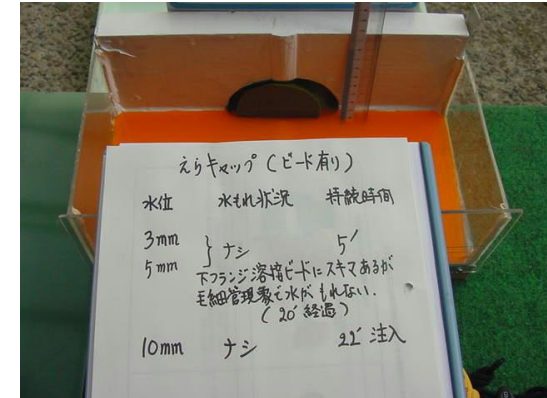 えらキャップ(ビード有り)
水位 水もれ状況 持続時間
3mm
} ナシ 5′
5mm
下フランジ溶接ビードにスキマあるが
毛細管現象で水がもれない.
(20′経過)
10mm ナシ 22′注入